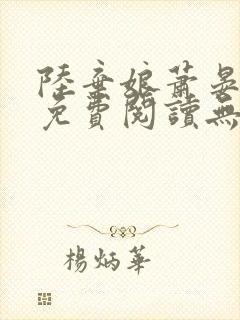 陸棄娘蕭晏
免費閱讀無
楊炳華